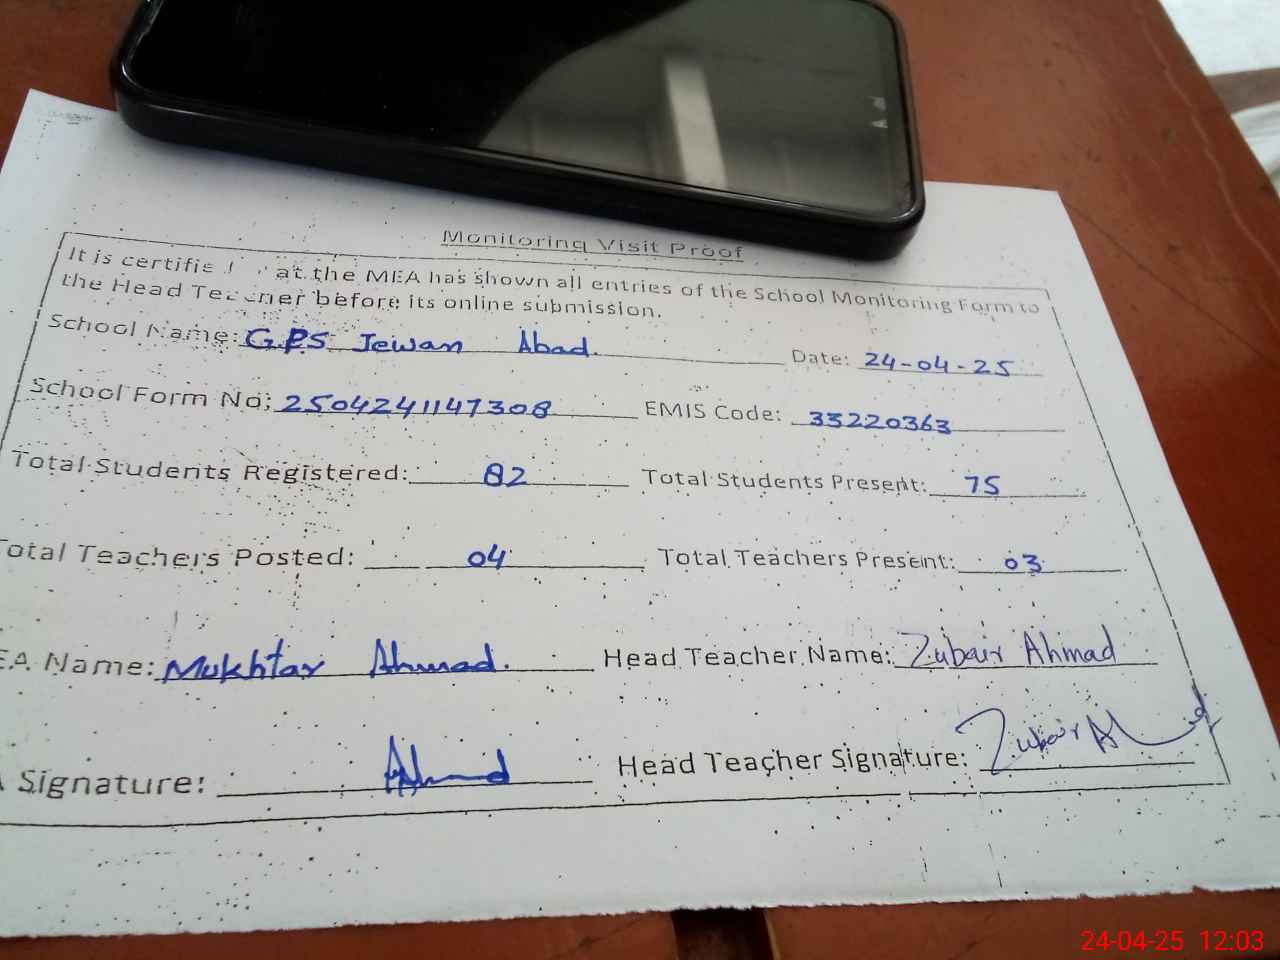 Monitoring Visit Proof
It is certifie at the MEA has shown all entries of the School Monitoring Form to
the Head Teacher before its online submission.
School Name: GPS Jewan Abad. Date: 24-04-25
School Form No: 2504241147308 EMIS Code: 33220363
Total Students Registered: 82 Total Students Present: 75
Total Teachers Posted: 04 Total Teachers Present: 03
EA Name: Mukhtar Ahmad. Head Teacher Name: Zubair Ahmad
Signature: Ahmad Head Teacher Signature: Zubair Ahmad
24-04-25 12:03